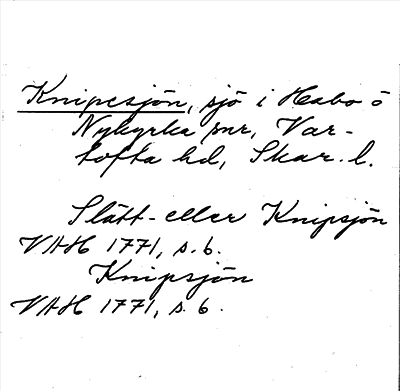 Knipesjön, sjö i Habo o
Nykyrka snr, Var-
tofta hd, Skar. l.
Slätt- eller Knipsjön
VAH 1771, s. 6.
Knipsjön
VAH 1771, s. 6.